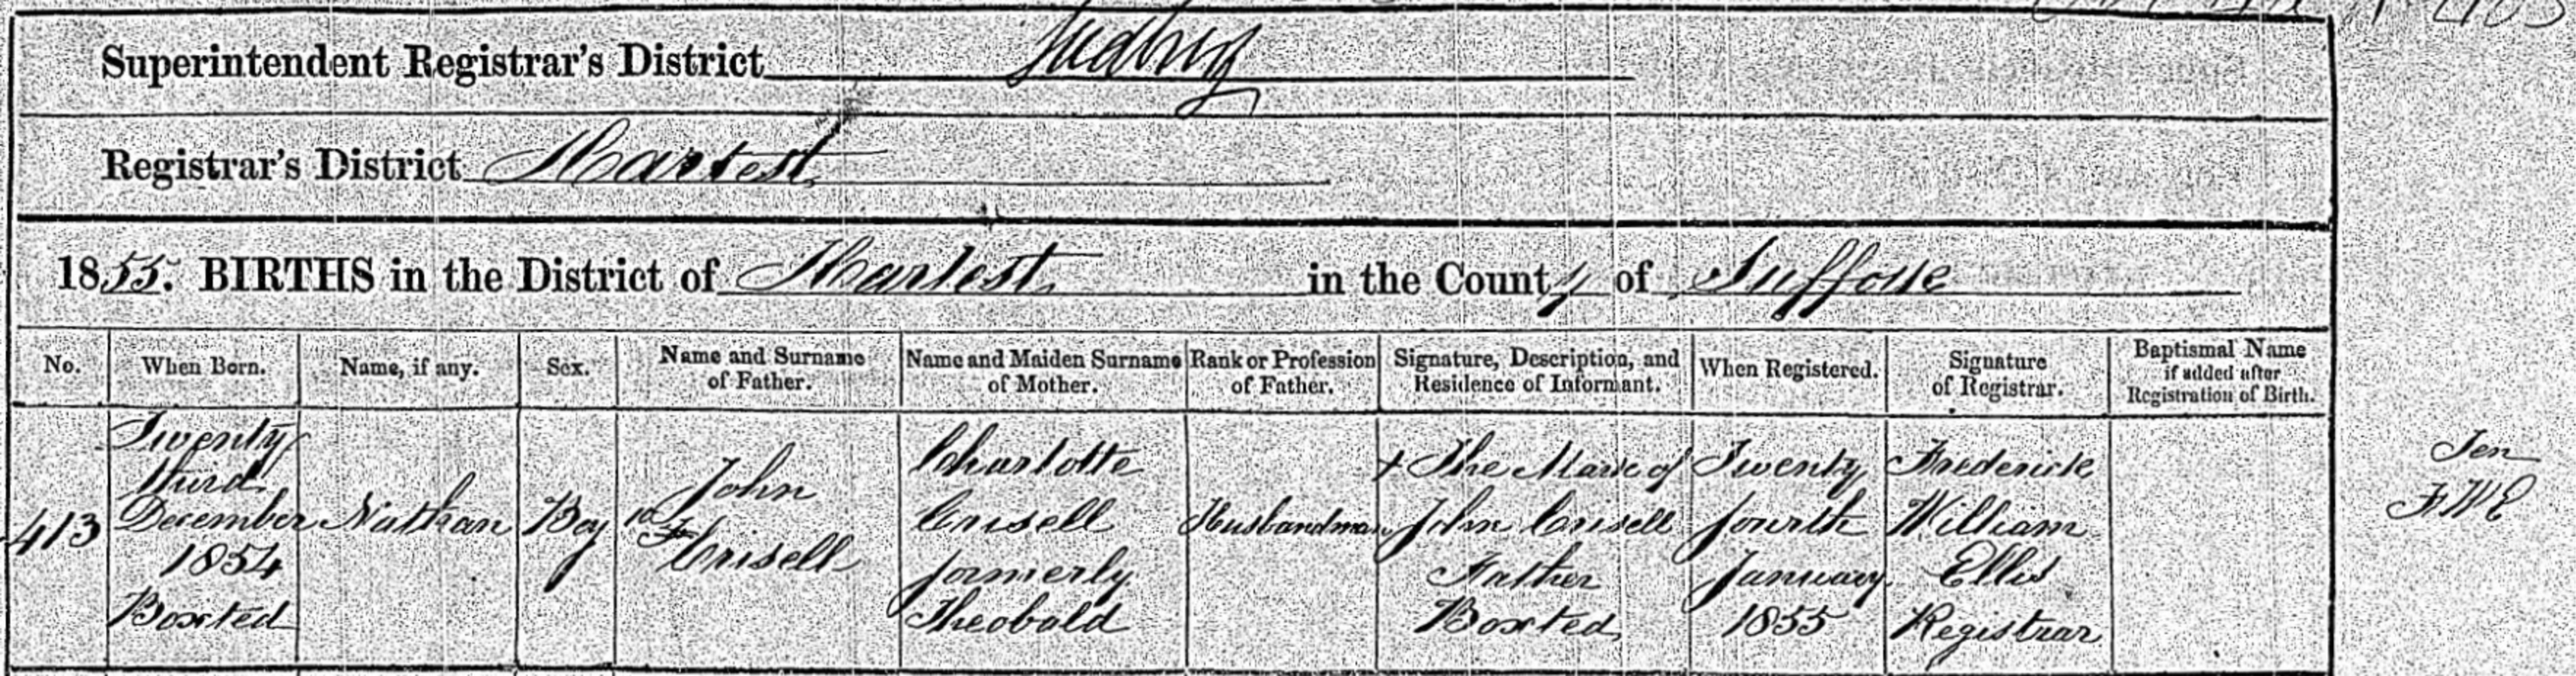 Superintendent Registrar's District Sudbury
Registrar's District Hartest
1855. BIRTHS in the District of Hartest in the County of Suffolk
No. When Born. Name, if any. Sex. Name and Surname of Father. Name and Maiden Surname of Mother. Rank or Profession of Father. Signature, Description, and Residence of Informant. When Registered. Signature of Registrar. Baptismal Name if added after Registration of Birth.
413
Twenty
third
December
1854
Boxted
Nathan
Boy
John
Crisell
Charlotte
Crisell
formerly
Theobald
Husbandman
X The Mark of
John Crisell
Father
Boxted
Twenty
fourth
January
1855
Frederick
William
Ellis
Registrar
Ten
FWE